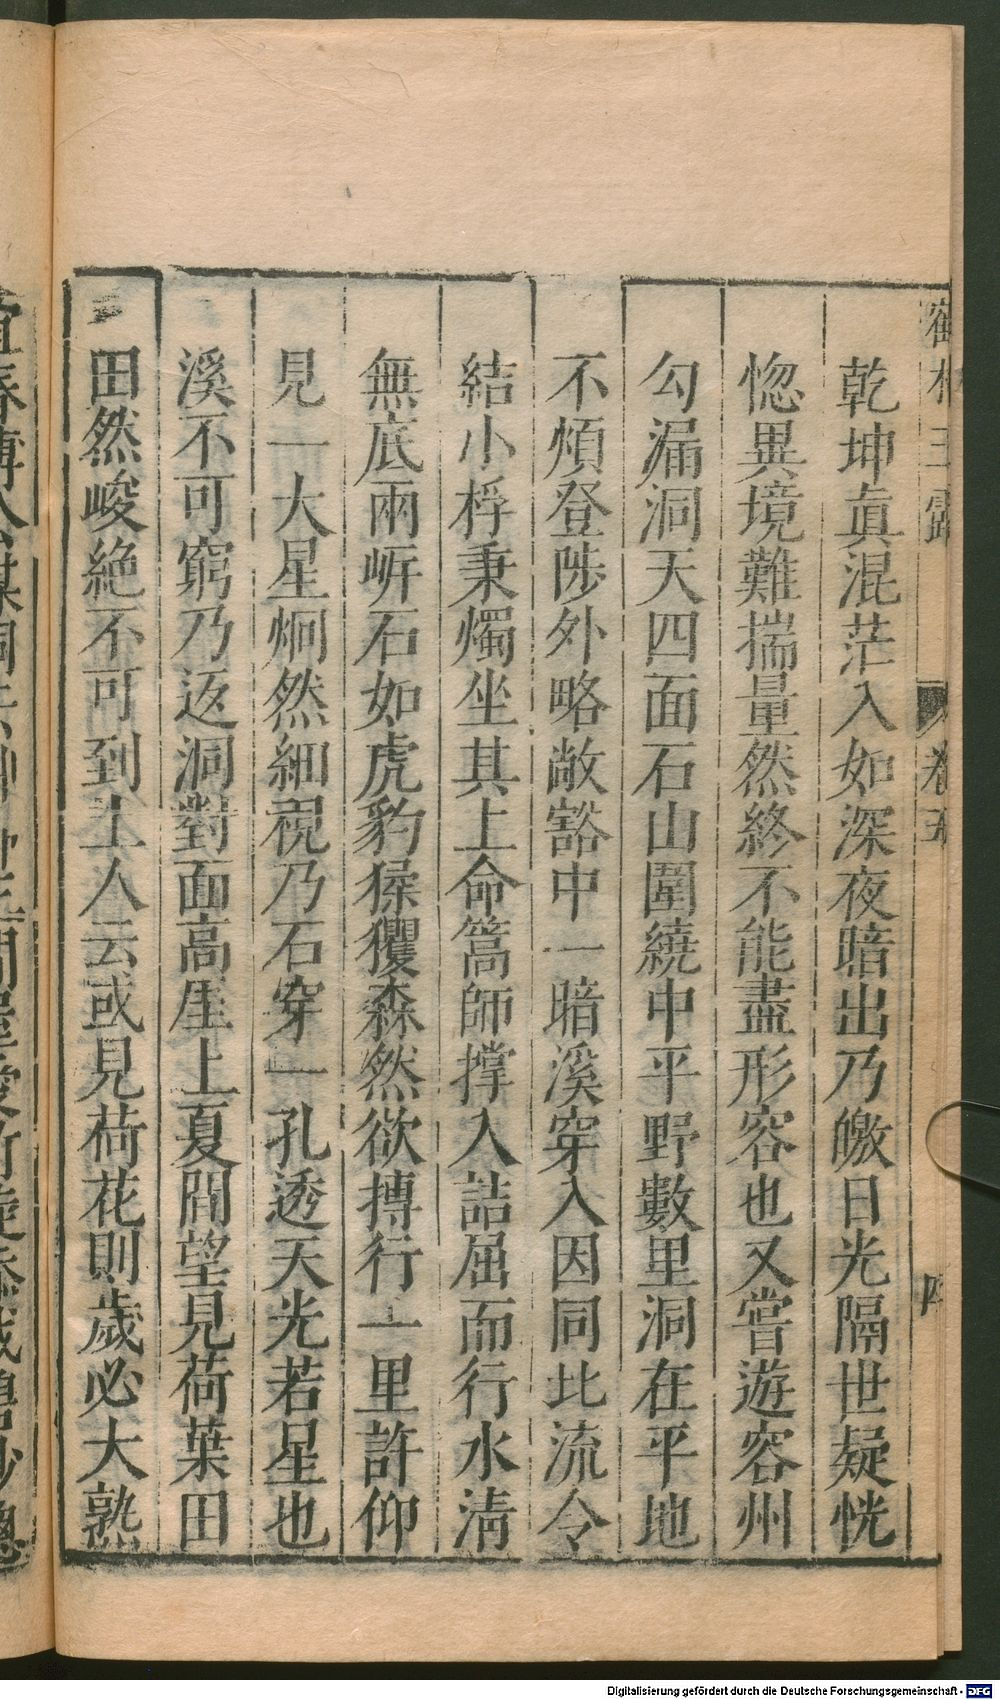 乾坤眞混茫入如深夜暗出乃皦日光隔世疑恍
惚異境難揣量然終不能盡形容也又嘗遊容州
勾漏洞天四面石山圍繞中平野數里洞在平地
不煩登陟外略敞豁中一暗溪穿入因同北流令
結小桴秉燭坐其上命篙師撐入詰屈而行水淸
無底兩岍石如虎豹猱玃森然欲搏行一里許仰
見一大星炯然細視乃石穿一孔透天光若星也
溪不可窮乃返洞對面高崖上夏間望見荷葉田
田然峻絕不可到土人云或見荷花則歲必大熟
卷五
Digitalisierung gefördert durch die Deutsche Forschungsgemeinschaft - DFG